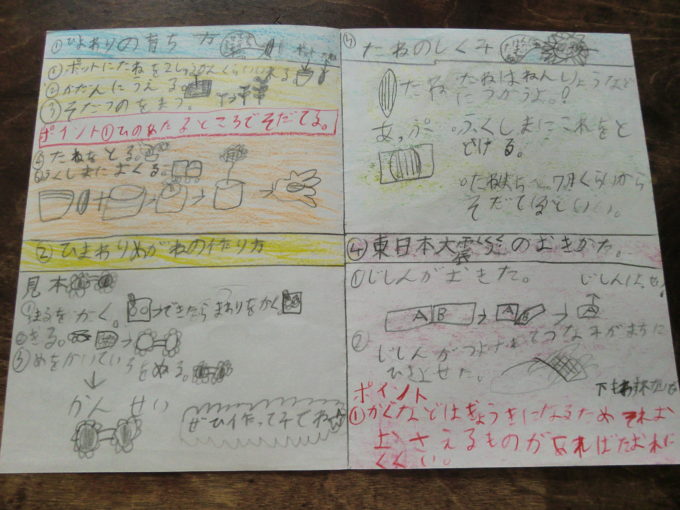 ① ひまわりの育ち方
① ポットにたねを2しゅうかんくらい
② かだんにうえる。
③ そだつのをまつ。
ポイント①ひのあたるところでそだてる。
たねをとる。
ふくしまにおくる。
② ひまわりめがねの作り方
見本
①まるをかく。
できたらまわりをかく
②きる。
③めをかいていろをぬる。
かんせい
ぜひ作ってみてね
たねのしくみ
たね
たねはねんりょうなど
につかうよ。!
あっぷ
ふくしまにこれをと
どける。
7月くらいから
そだてるといい。
④ 東日本大震
のおきかた。
①じしんがおきた。
じしんは
A B
A B
A
②
じしんがつよすぎてつなみがまちに
ポイント
①かぐなどはきょうきになるため それお
上 さえるものがあればたおれに
くくい。